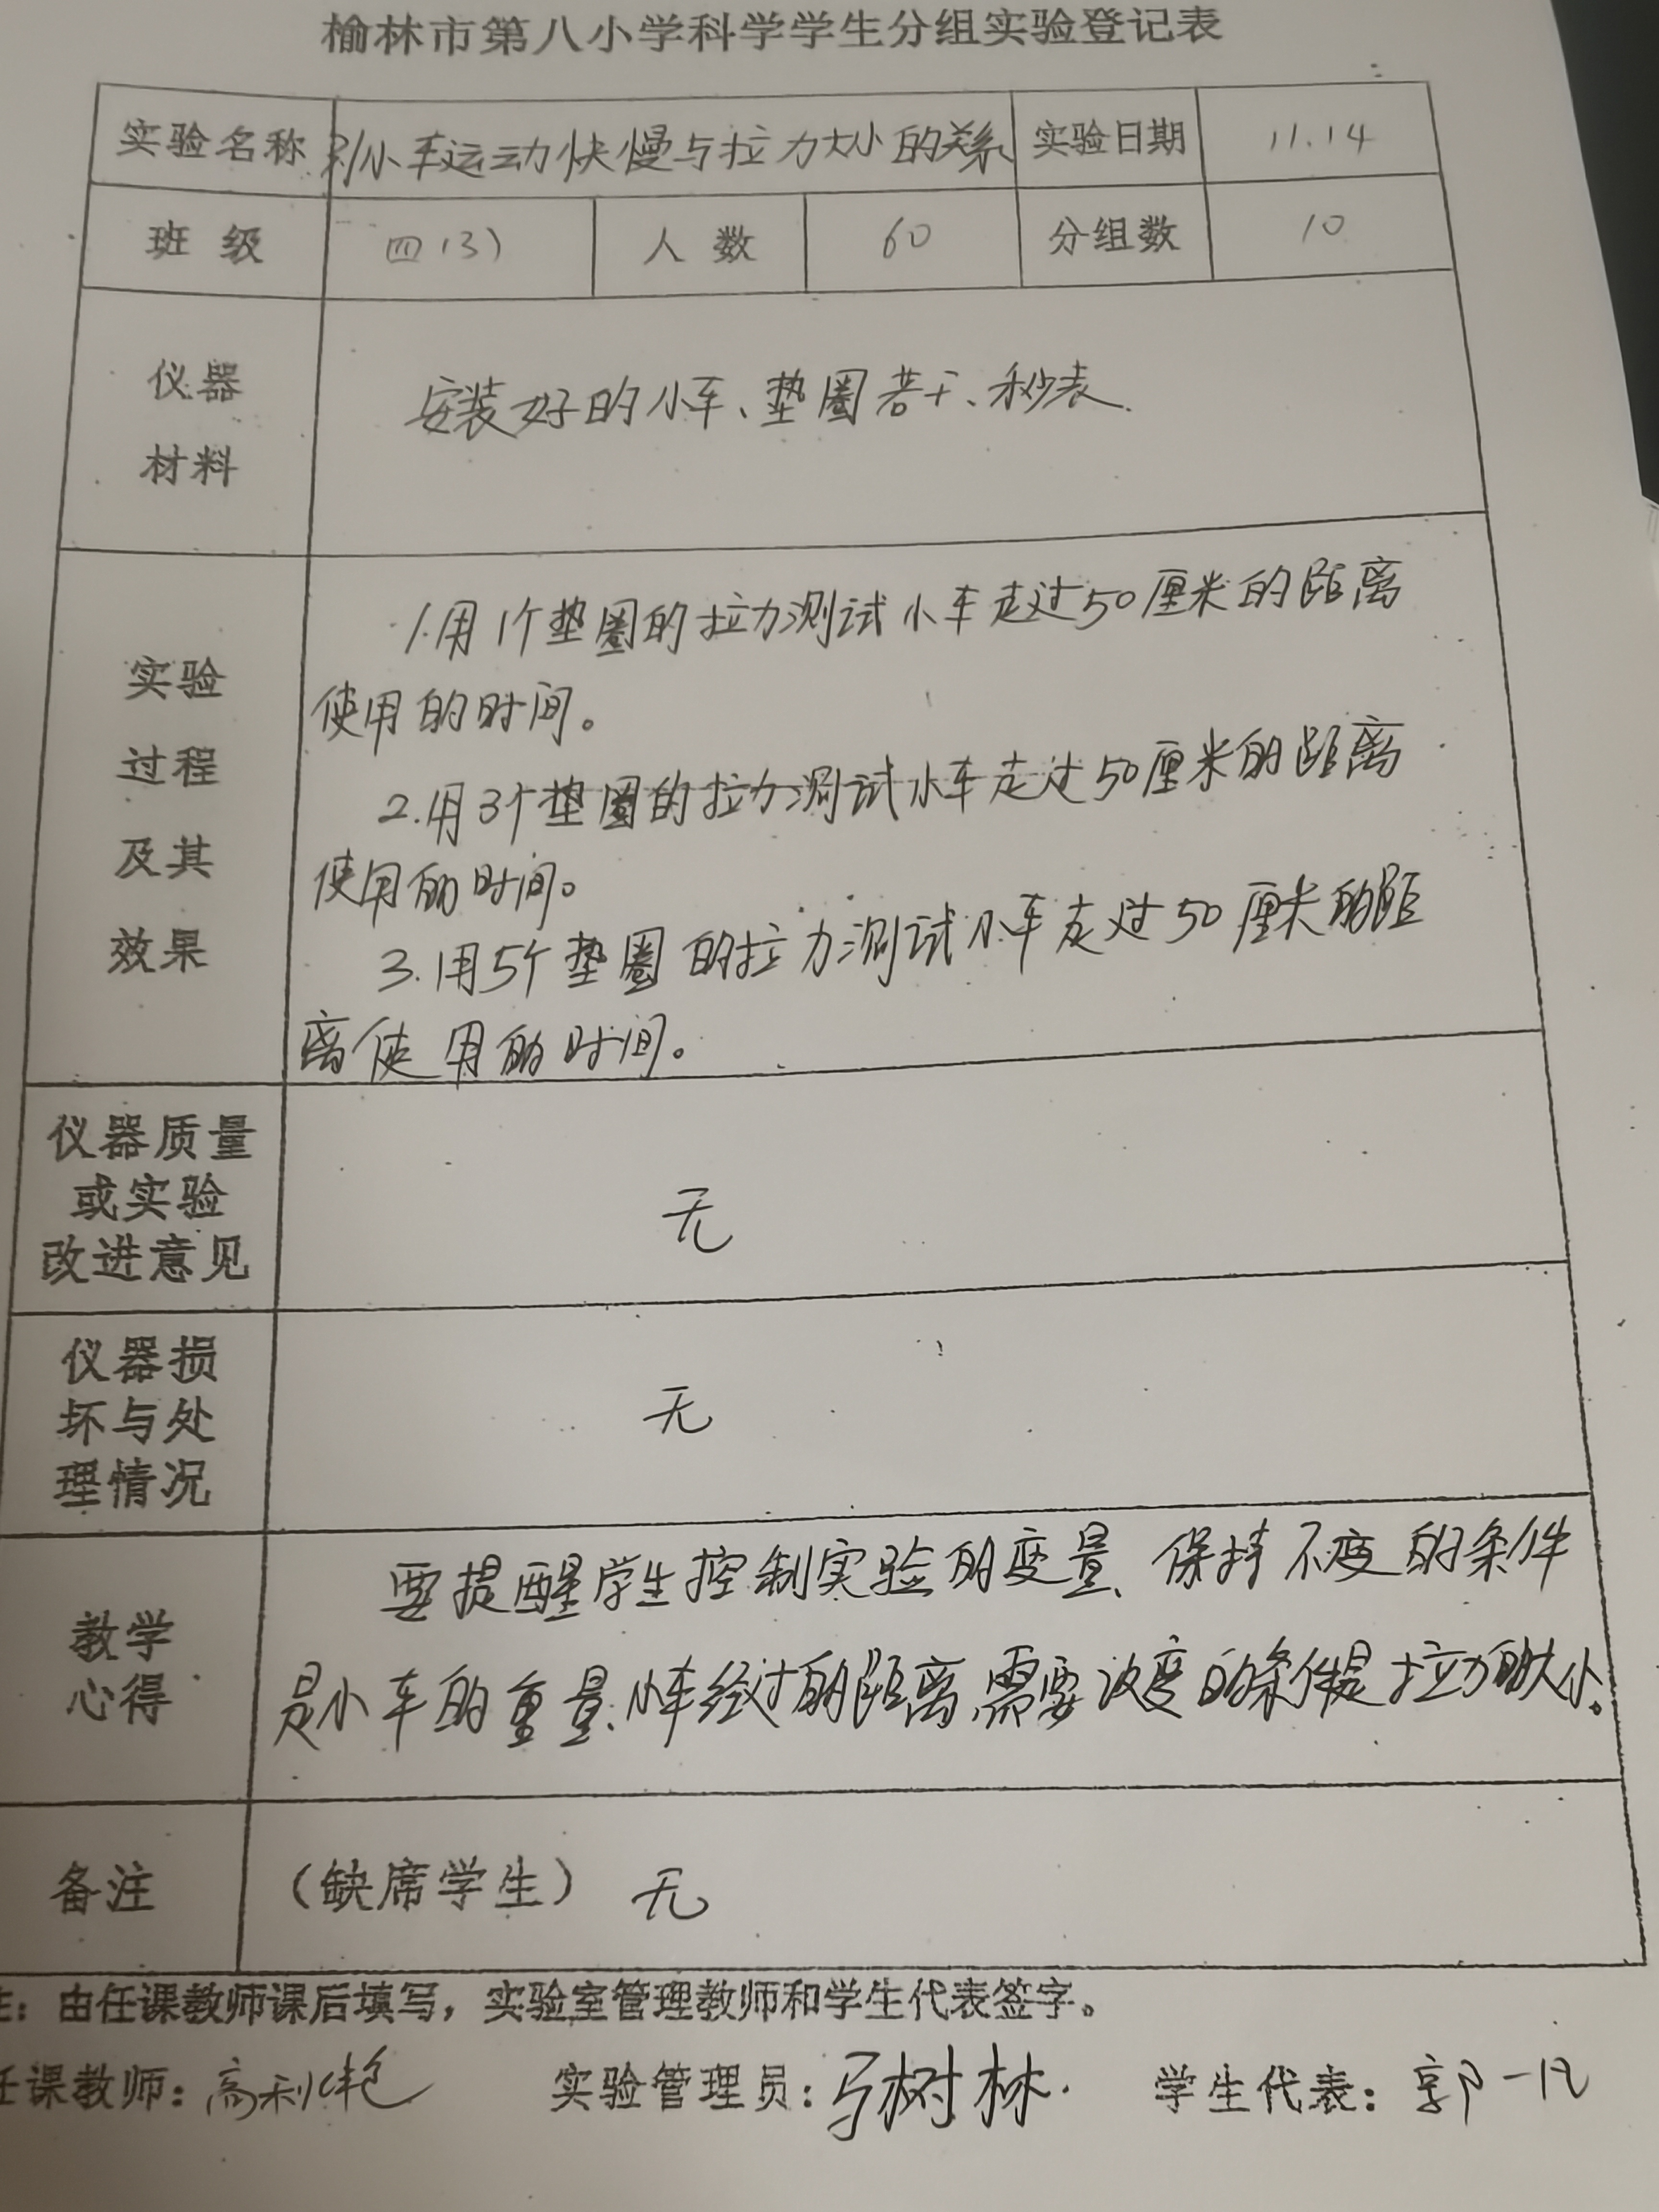 榆林市第八小学科学学生分组实验登记表
实验名称 测小车运动快慢与拉力大小的关系 实验日期 11.14
班级 四(3) 人数 60 分组数 10
仪器
材料
安装好的小车、垫圈若干、秒表.
实验
过程
及其
效果
1.用1个垫圈的拉力测试小车走过50厘米的距离
使用的时间。
2.用3个垫圈的拉力测试小车走过50厘米的距离
使用的时间。
3.用5个垫圈的拉力测试小车走过50厘米的距
离使用的时间。
仪器质量
或实验
改进意见
无
仪器损
坏与处
理情况
无
教学
心得
要提醒学生控制实验的变量、保持不变的条件
是小车的重量、小车经过的距离,需要改变的条件是拉力的大小。
备注 (缺席学生) 无
注:由任课教师课后填写,实验室管理教师和学生代表签字。
任课教师:高利艳 实验管理员:马树林. 学生代表:郭一凡